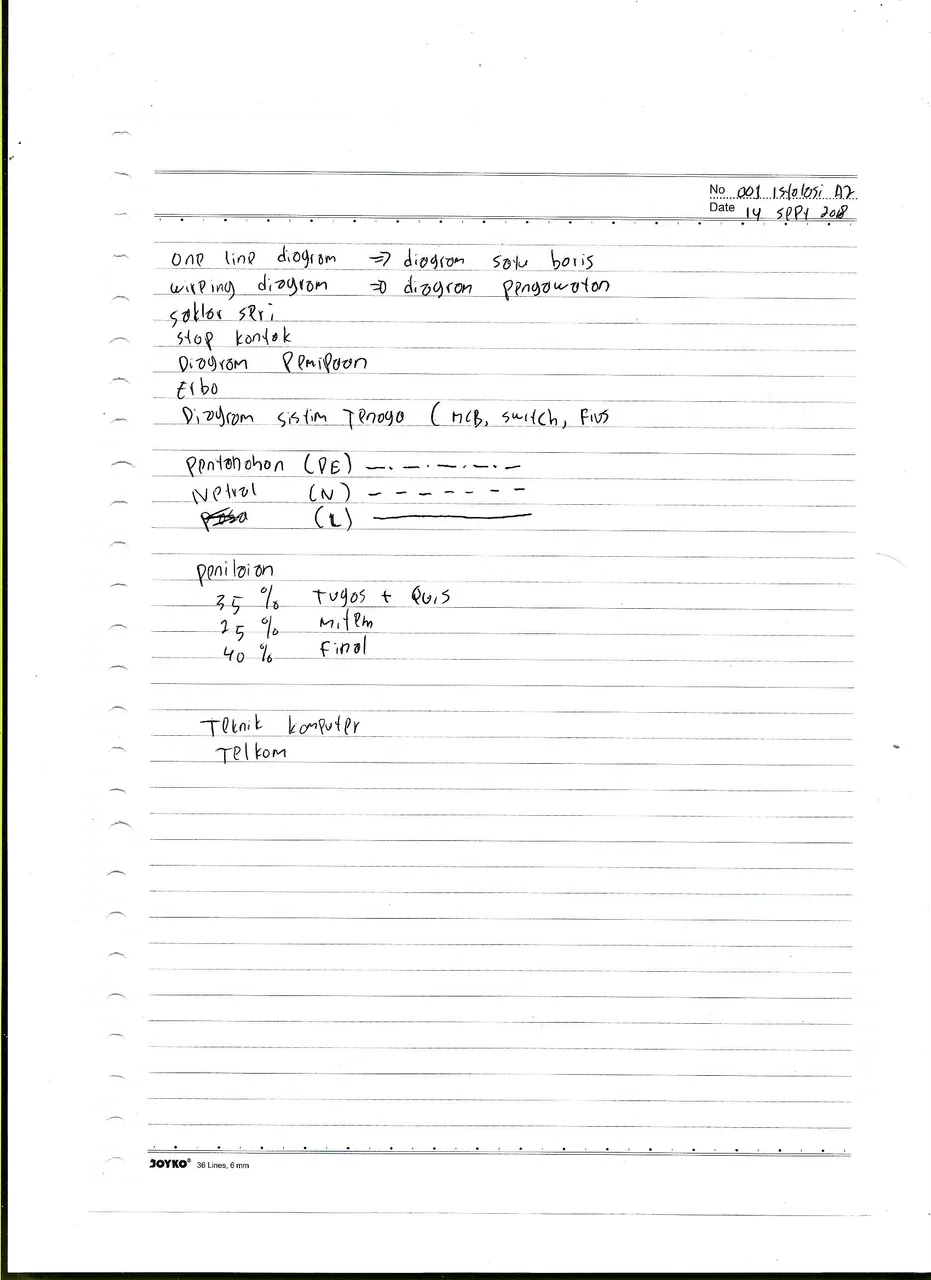 No 001 Istalasi A2
Date 14 Sept 2018
one line diagram => diagram satu baris
wireing diagram => diagram pengawatan
saklar seri
stop kontak
Diagram Pemipaan
Diagram sistim Tenaga (MCB, switch, Fius
Pentanahan (PE)
Netral (N)
(L)
penilaian
35 % Tugas + Quis
25 % Mitem
40 % Final
Teknik komputer
Telkom
JOYKO® 36 Lines, 6 mm